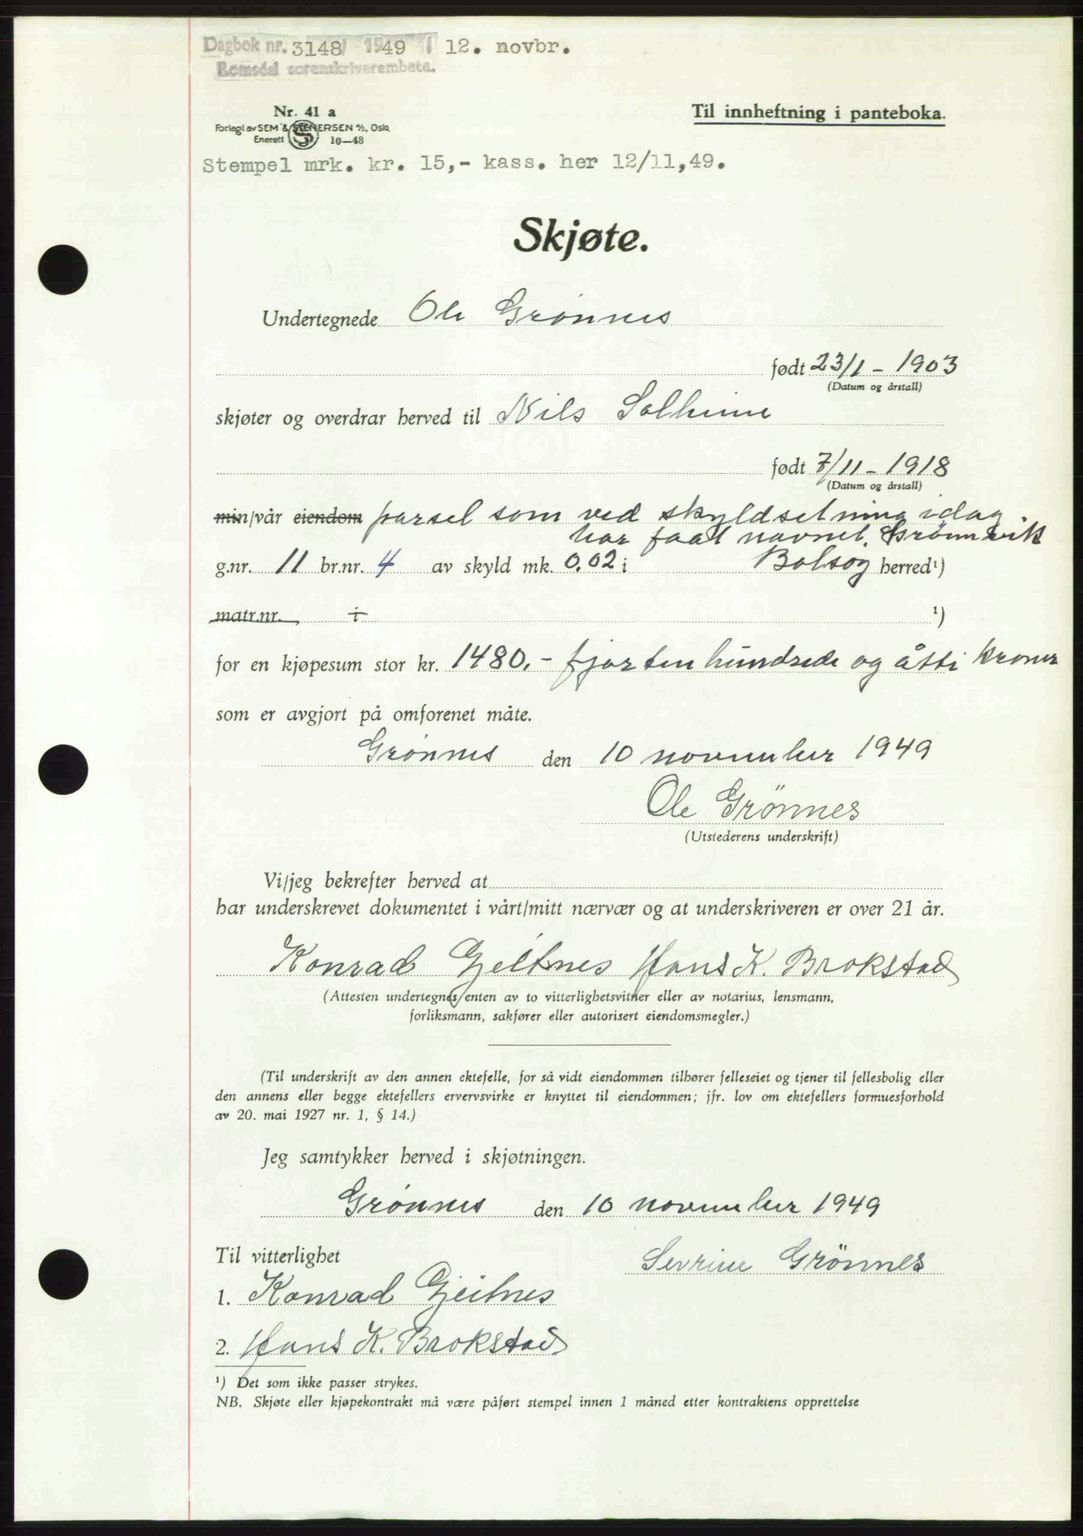 Dagbok nr. 3148/ 1949 / 12. novbr.
Romsdal sorenskriverembete.
Nr. 41 a
Til innheftning i panteboka.
Forlagt av SEM & STENERSEN A/S, Oslo
Enerett 10—48
Stempel mrk. kr. 15,- kass. her 12/11,49.
Skjøte.
Undertegnede Ole Grønnes
født 23/1 - 1903
(Datum og årstall)
skjøter og overdrar herved til Nils Solheim
født 7/11 - 1918
(Datum og årstall)
min/vår eiendom parsel som ved skyldsetning idag
har faat navnet Grønnvik
g.nr. 11 br.nr. 4 av skyld mk. 0.02 i Bolsøy herred¹)
matr.nr. i ¹)
for en kjøpesum stor kr. 1480,- fjorten hundrede og åtti kroner
som er avgjort på omforenet måte.
Grønnes den 10 november 1949
Ole Grønnes
(Utstederens underskrift)
Vi/jeg bekrefter herved at
har underskrevet dokumentet i vårt/mitt nærvær og at underskriveren er over 21 år.
Konrad Gjeitnes Hans K. Brokstad
(Attesten undertegnes enten av to vitterlighetsvitner eller av notarius, lensmann,
forliksmann, sakfører eller autorisert eiendomsmegler.)
(Til underskrift av den annen ektefelle, for så vidt eiendommen tilhører felleseiet og tjener til fellesbolig eller
den annens eller begge ektefellers ervervsvirke er knyttet til eiendommen; jfr. lov om ektefellers formuesforhold
av 20. mai 1927 nr. 1, § 14.)
Jeg samtykker herved i skjøtningen.
Grønnes den 10 november 1949
Til vitterlighet
Sevrine Grønnes
1. Konrad Gjeitnes
2. Hans K. Brokstad
¹) Det som ikke passer strykes.
NB. Skjøte eller kjøpekontrakt må være påført stempel innen 1 måned etter kontraktens opprettelse